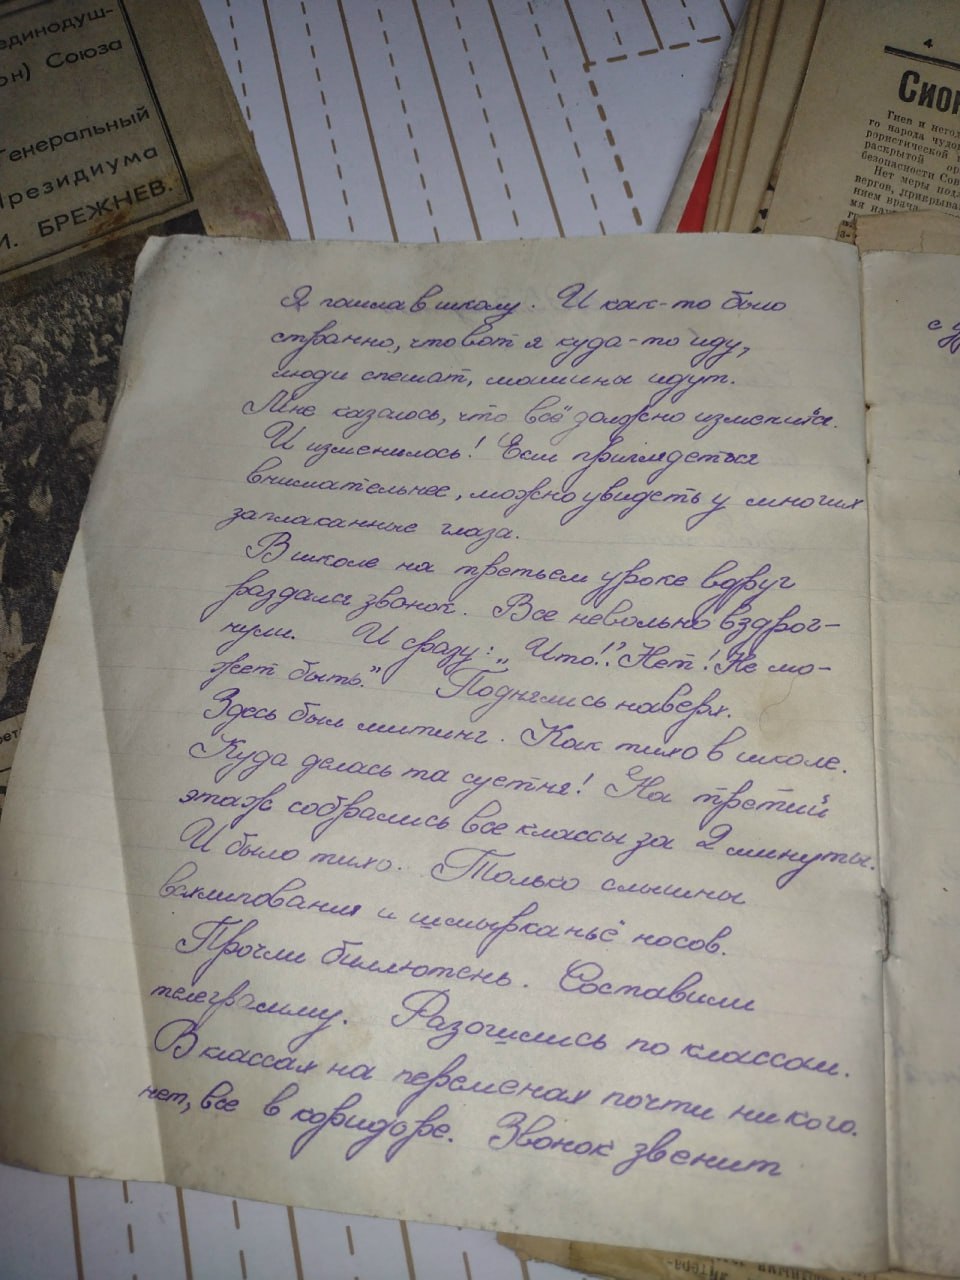 единодуш-
он) Союза
Генеральный
Президиума
И. БРЕЖНЕВ.
4
Сион
Гнев и негод
го народа чудо
рористической
раскрытой ор
безопасности Сов
Нет меры под
вергов, прикрыва
нием врача
Я пошла в школу. И как-то было
странно, что вот я куда-то иду,
люди спешат, машины идут.
Мне казалось, что всё должно изменится.
И изменилось! Если приглядеться
внимательнее, можно увидеть у многих
заплаканные глаза.
В школе на третьем уроке вдруг
раздался звонок. Все невольно вздрог-
нули. И сразу: „Что!? Нет! Не мо-
жет быть." Поднялись наверх.
Здесь был митинг. Как тихо в школе.
Куда делась та суетня! На третий
этаж собрались все классы за 2 минуты.
И было тихо. Только слышны
всхлипования и шмырканьё носов.
Прочли биллютень. Составили
телеграмму. Разошлись по классам.
В классах на переменах почти никого.
нет, все в коридоре. Звонок звенит